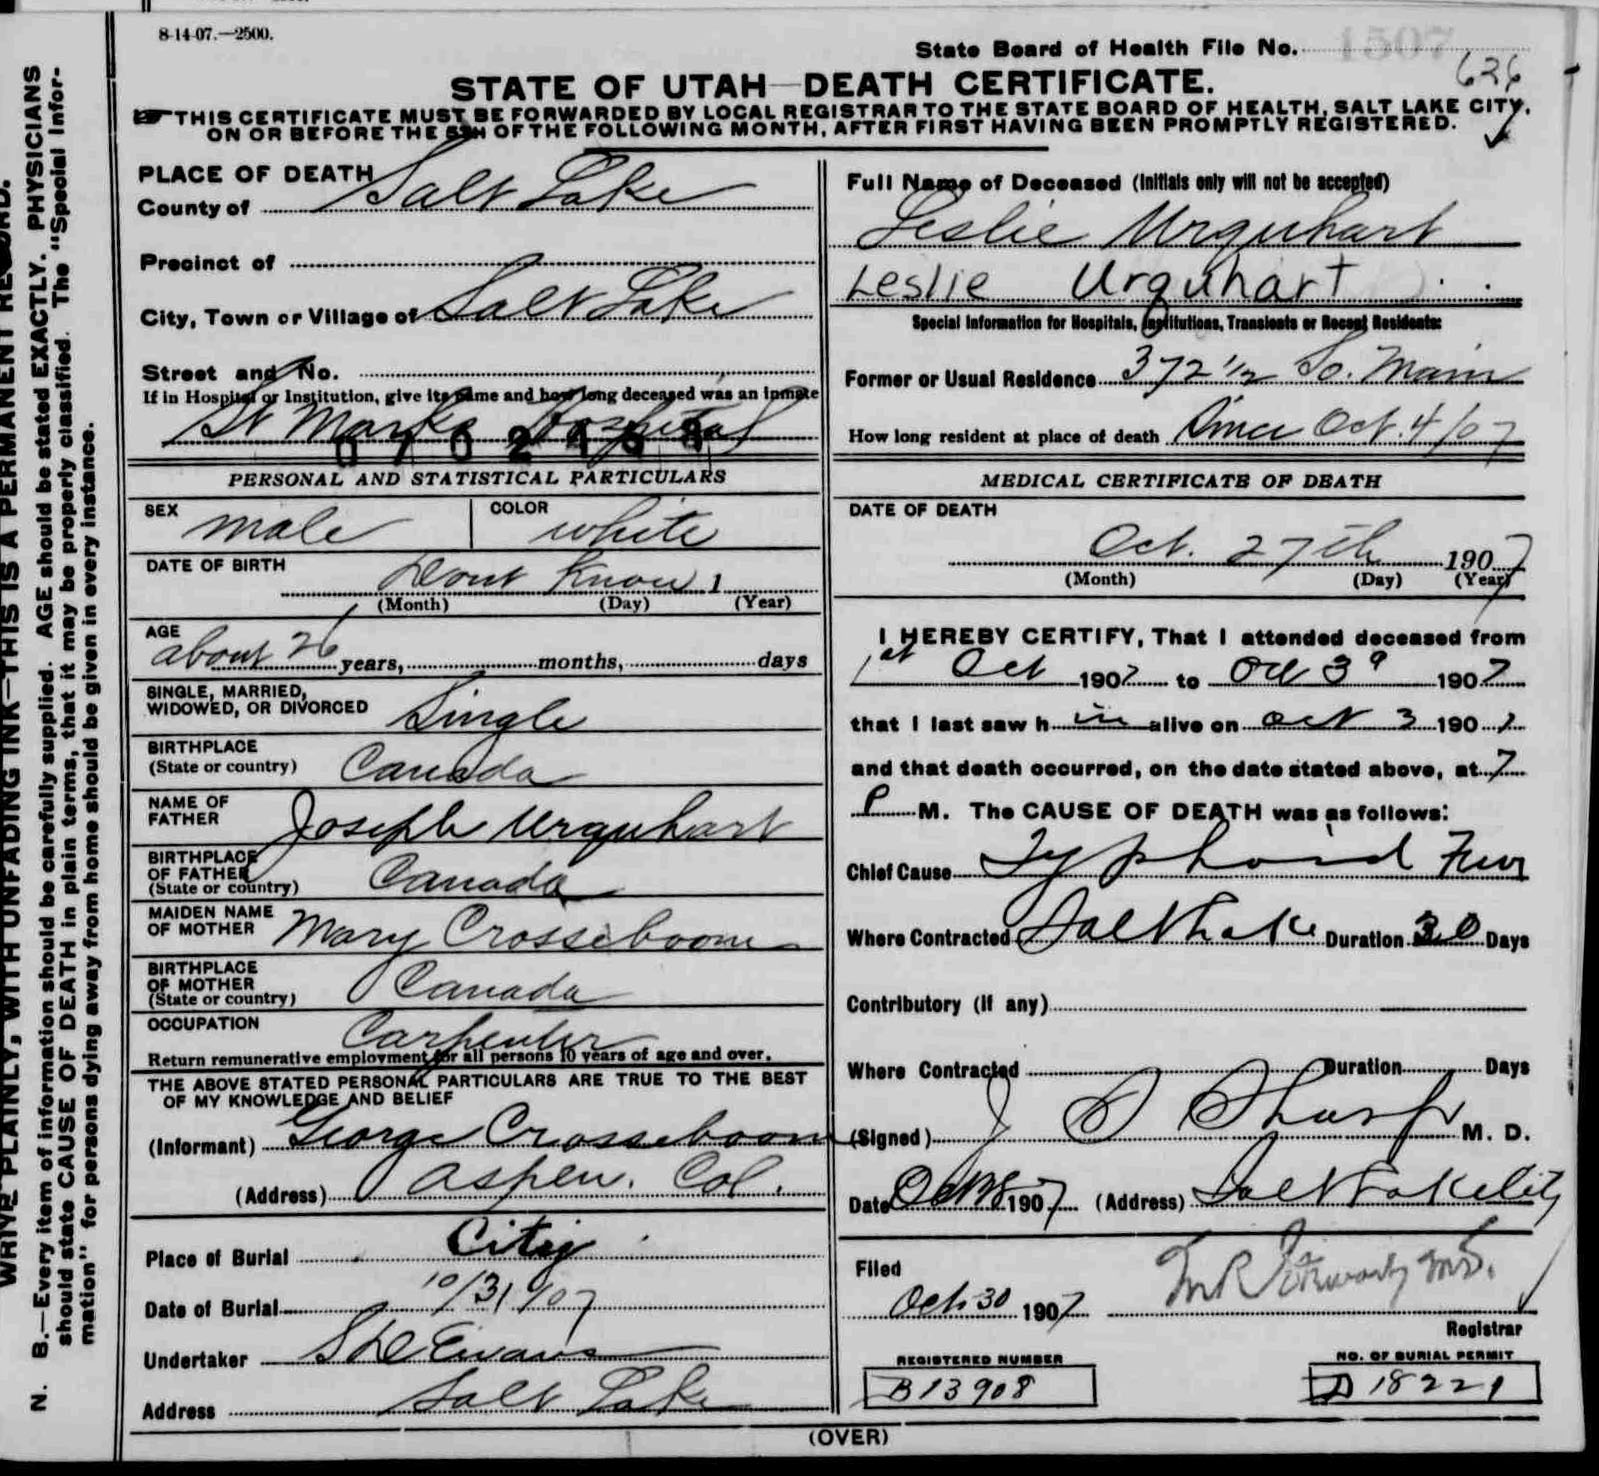 8-14-07.—2500.
State Board of Health File No. 1507
626
STATE OF UTAH—DEATH CERTIFICATE.
THIS CERTIFICATE MUST BE FORWARDED BY LOCAL REGISTRAR TO THE STATE BOARD OF HEALTH, SALT LAKE CITY,
ON OR BEFORE THE 5TH OF THE FOLLOWING MONTH, AFTER FIRST HAVING BEEN PROMPTLY REGISTERED.
WRITE PLAINLY, WITH UNFADING INK—THIS IS A PERMANENT RECORD.
N. B.—Every item of information should be carefully supplied. AGE should be stated EXACTLY. PHYSICIANS
should state CAUSE OF DEATH in plain terms, that it may be properly classified. The "Special Infor-
mation" for persons dying away from home should be given in every instance.
PLACE OF DEATH
County of Salt Lake
Precinct of
City, Town or Village of Salt Lake
Street and No.
If in Hospital or Institution, give its name and how long deceased was an inmate
St Marks Hospital
PERSONAL AND STATISTICAL PARTICULARS
SEX male COLOR white
DATE OF BIRTH Dont Know 1
(Month) (Day) (Year)
AGE
about 26 years, months, days
SINGLE, MARRIED,
WIDOWED, OR DIVORCED Single
BIRTHPLACE
(State or country) Canada
NAME OF
FATHER Joseph Urquhart
BIRTHPLACE
OF FATHER
(State or country) Canada
MAIDEN NAME
OF MOTHER Mary Crosseboom
BIRTHPLACE
OF MOTHER
(State or country) Canada
OCCUPATION Carpenter
Return remunerative employment for all persons 10 years of age and over.
THE ABOVE STATED PERSONAL PARTICULARS ARE TRUE TO THE BEST
OF MY KNOWLEDGE AND BELIEF
(Informant) George Crosseboom
(Address) Aspen. Col.
Place of Burial City
Date of Burial 10/31/07
Undertaker S D Evans
Address Salt Lake
Full Name of Deceased (Initials only will not be accepted)
Leslie Urquhart
Leslie Urquhart
Special Information for Hospitals, Institutions, Transients or Recent Residents:
Former or Usual Residence 372 1/2 So. Main
How long resident at place of death Since Oct. 4/07
MEDICAL CERTIFICATE OF DEATH
DATE OF DEATH
Oct. 27th 1907
(Month) (Day) (Year)
I HEREBY CERTIFY, That I attended deceased from
1st Oct 1907 to Oct 3 1907
that I last saw h im alive on Oct 3 1907
and that death occurred, on the date stated above, at 7
P M. The CAUSE OF DEATH was as follows:
Chief Cause Typhoid Fever
Where Contracted Salt Lake Duration 30 Days
Contributory (if any)
Where Contracted Duration Days
(Signed) J S Sharp M. D.
Date Oct 1907 (Address) Salt Lake City
Filed
Oct 30 1907
Registrar
REGISTERED NUMBER
B13908
NO. OF BURIAL PERMIT
D 18221
(OVER)